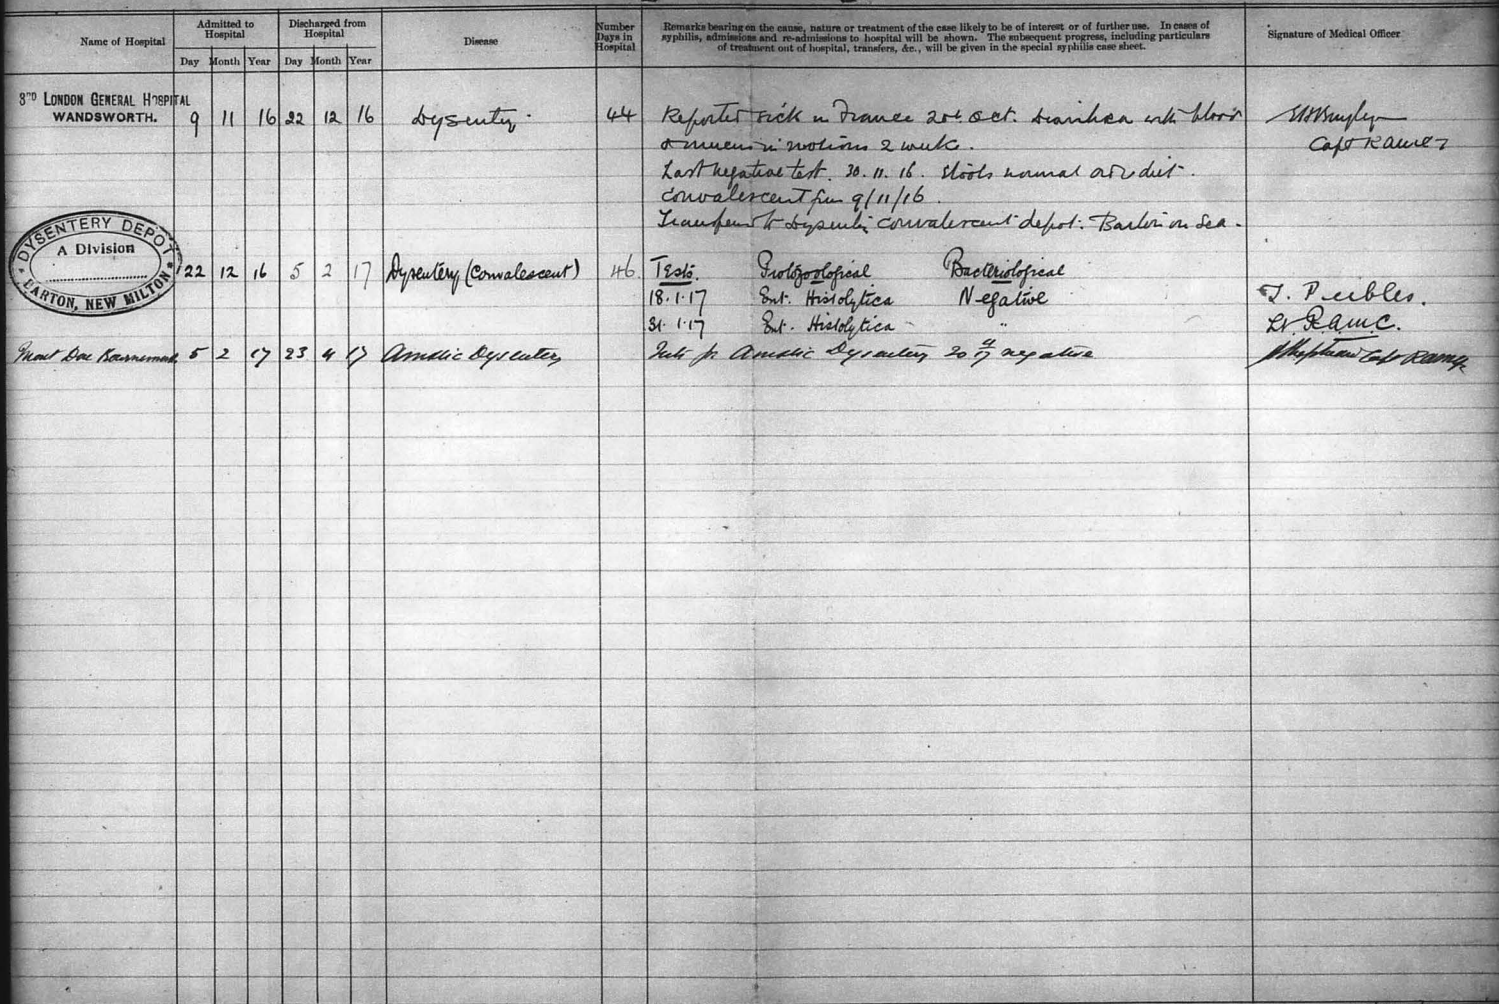 Name of Hospital
Admitted to Hospital
Discharged from Hospital
Disease
Number Days in Hospital
Remarks bearing on the cause, nature or treatment of the case likely to be of interest or of further use. In cases of
syphilis, admissions and re-admissions to hospital will be shown. The subsequent progress, including particulars
of treatment out of hospital, transfers, &c., will be given in the special syphilis case sheet.
Signature of Medical Officer
Day Month Year Day Month Year
3RD LONDON GENERAL HOSPITAL
WANDSWORTH.
9 11 16 22 12 16 Dysentery. 44 Reported sick in France 20th Oct. Diarrhoea with blood
Capt RAMC T
& mucus in motions 2 weeks.
Last negative test. 30.11.16. Stools normal diet.
Convalescent from 9/11/16.
Transferred to Dysentery Convalescent depot. Barton on Sea.
DYSENTERY DEPOT
A Division
BARTON, NEW MILTON
22 12 16 5 2 17 Dysentery (Convalescent) 46. Tests. Protozoological Bacteriological
18.1.17 Ent. Histolytica Negative
J. Peebles.
31.1.17 Ent. Histolytica "
Lt. R.a.m.C.
Mont Dore Bournemouth 5 2 17 23 4 17 Amoebic Dysentery Tests for Amoebic Dysentery 20 4 17 negative Capt RAMC